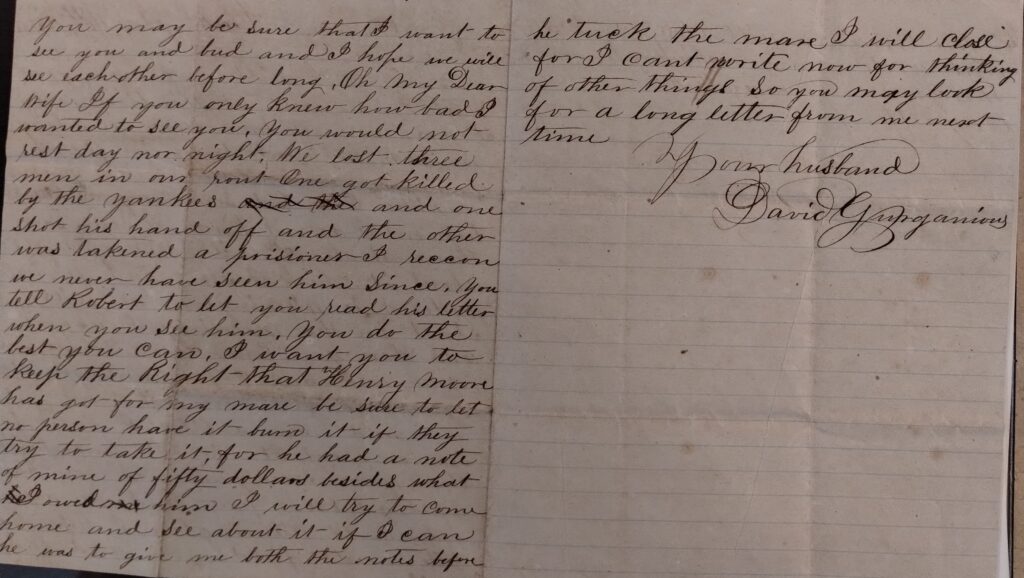 You may be sure that I want to
see you and bud and I hope we will
see each other before long, Oh my Dear
Wife If you only knew how bad I
wanted to see you, You would not
rest day nor night, We lost three
men in our rout One got killed
by the yankees and the and one
shot his hand off and the other
was takened a prisioner I reccon
we never have seen him since, You
tell Robert to let you read his letter
when you see him, You do the
best you can, I want you to
keep the Right that Henry Moore
has got for my mare be sure to let
no person have it burn it if they
try to take it, for he had a note
of mine of fifty dollars besides what
I owed him I will try to come
home and see about it if I can
he was to give me both the notes before
he tuck the mare I will close
for I cant write now for thinking
of other things So you may look
for a long letter from me next
time
Your husband
David Gurganious